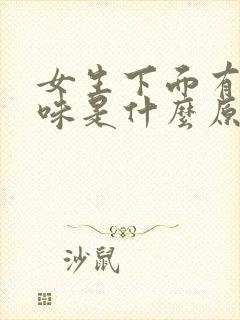 女生下面有
味是什麼原
沙鼠